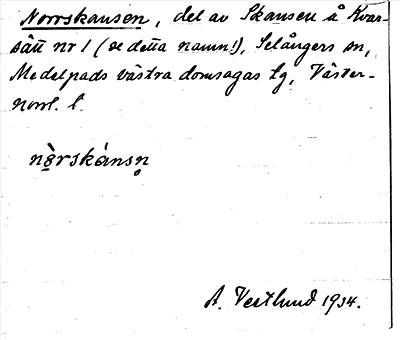 Norrskansen, del av Skansen å Kvar-
sätt nr 1 (se detta namn!), Selångers sn,
Medelpads västra domsagas tg, Väster-
norrl. l.
nòrskánsn̥
A. Vestlund 1934.